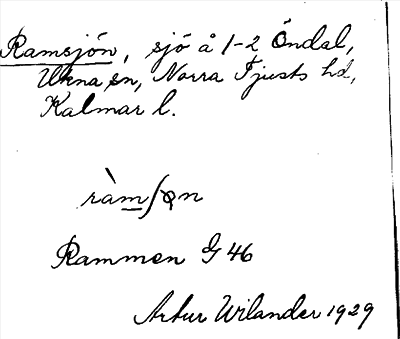 Ramsjön, sjö å 1-2 Öndal,
Ukna sn, Norra Tjusts hd,
Kalmar l.
ràmʃøn
Rammen G 46
Artur Wilander 1929